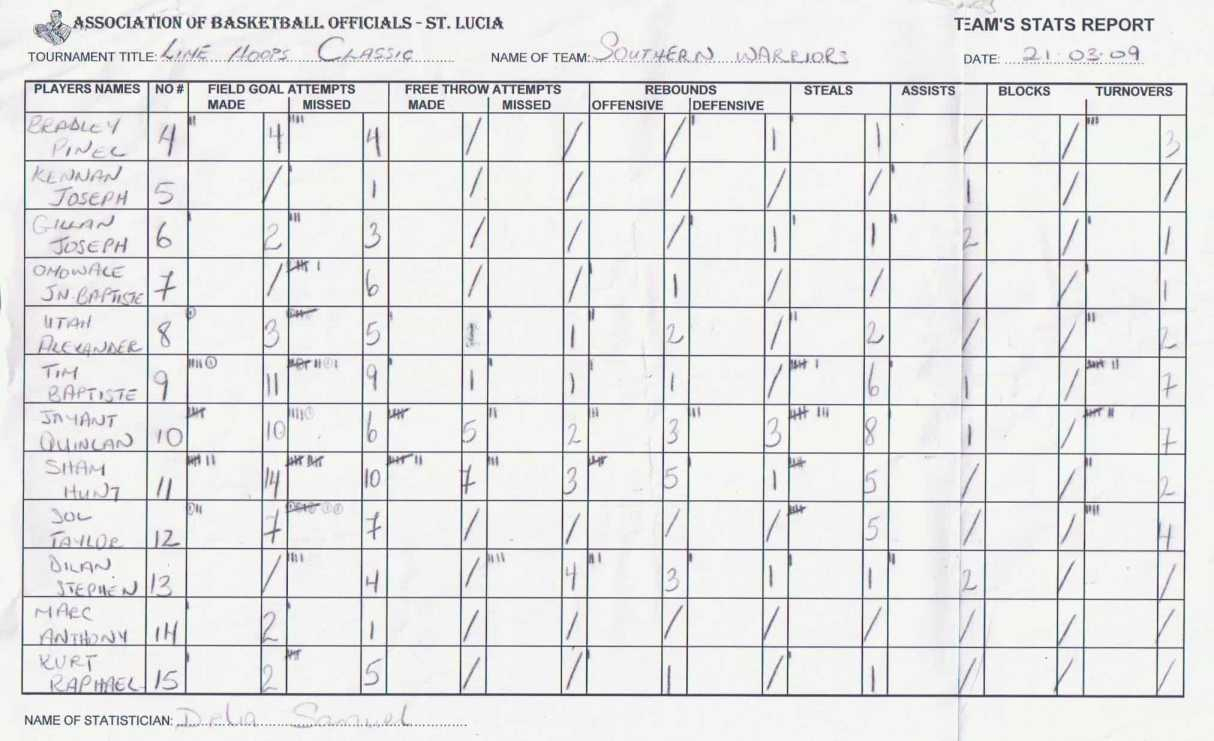 ASSOCIATION OF BASKETBALL OFFICIALS - ST. LUCIA
TEAM'S STATS REPORT
TOURNAMENT TITLE: LIME HOOPS CLASSIC NAME OF TEAM: SOUTHERN WARRIORS DATE: 21.03.09
PLAYERS NAMES NO# FIELD GOAL ATTEMPTS FREE THROW ATTEMPTS REBOUNDS STEALS ASSISTS BLOCKS TURNOVERS
MADE MISSED MADE MISSED OFFENSIVE DEFENSIVE
BRADLEY
PINEL 4 4 4 / / / 1 1 / / 3
KENNAN
JOSEPH 5 / 1 / / / / / 1 / /
GILLAN
JOSEPH 6 2 3 / / / 1 1 2 / 1
OMOWALE
JN. BAPTISTE 7 / 6 / / 1 / / / / 1
UTAH
ALEXANDER 8 3 5 1 1 2 / 2 / / 2
TIM
BAPTISTE 9 11 9 1 1 1 / 6 1 / 7
JAYANT
QUINLAN 10 10 6 5 2 3 3 8 1 / 7
SHAM
HUNT 11 14 10 7 3 5 1 5 / / 2
JOL
TAYLOR 12 7 7 / / / / 5 / / 4
DILAN
STEPHEN 13 / 4 / 4 3 1 1 2 / /
MARC
ANTHONY 14 2 1 / / / / / / / /
KURT
RAPHAEL 15 2 5 / / 1 / 1 / / /
NAME OF STATISTICIAN: Delia Samuel